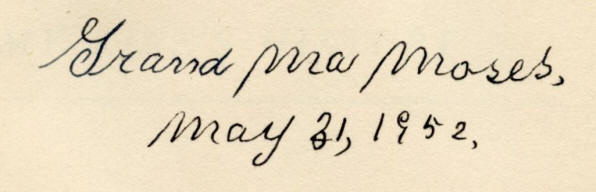 Grand Ma Moses,
May 31, 1952,